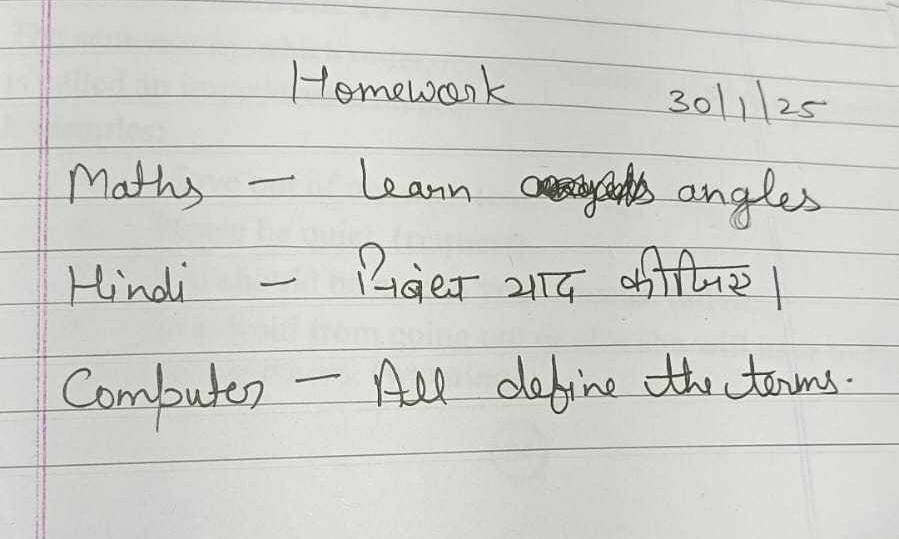 Homework 30/1/25
Maths - Learn angles
Hindi - निबंध याद कीजिए।
Computer - All define the terms.